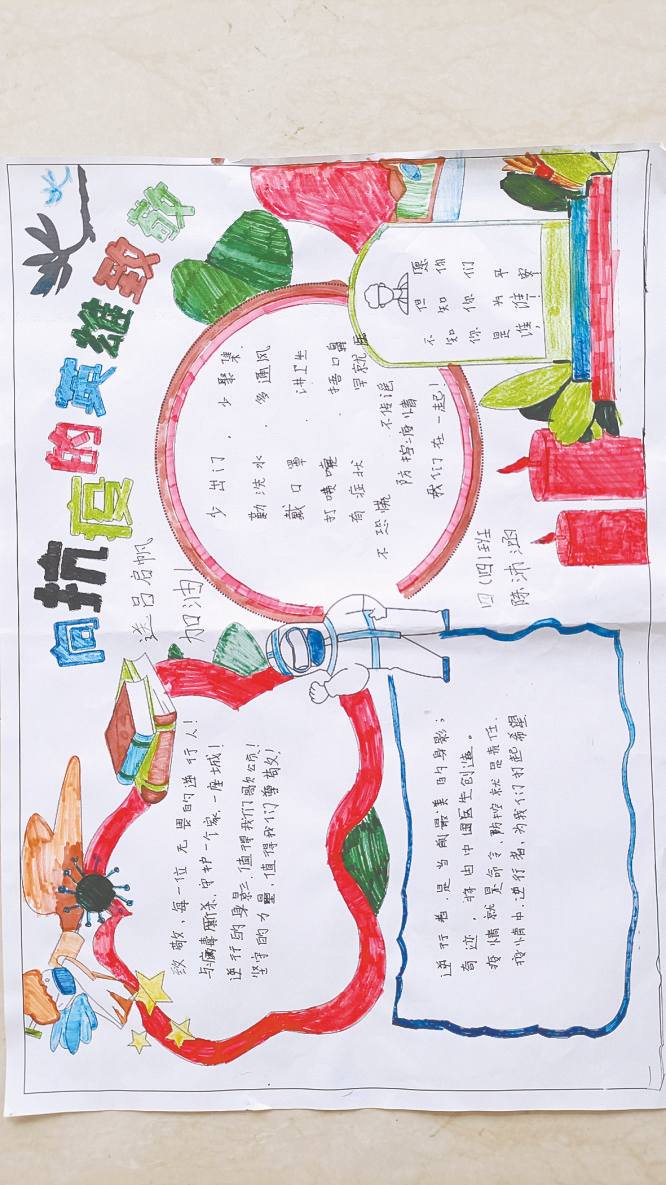 向抗疫的英雄致敬
送吕启帆
加油!
少出门,少聚集.
勤洗水,多通风
戴口罩.讲卫生
打喷嚏.捂口鼻
有症状 早就医
不恐慌 不传谣
防控疫情
我们在一起!
不知你是谁,
但知你为谁!
愿你们平安
四(四)班
陈沛涵
致敬,每一位无畏的逆行人!
与病毒厮杀,守护一个家一座城!
逆行的身影,值得我们
坚守的力量,值得我们尊敬!
逆行者是当前最美的身影;
奇迹,将由中国医生创造。
疫情就是命令,防控就是责任.
疫情中逆行者,为我们打起希望